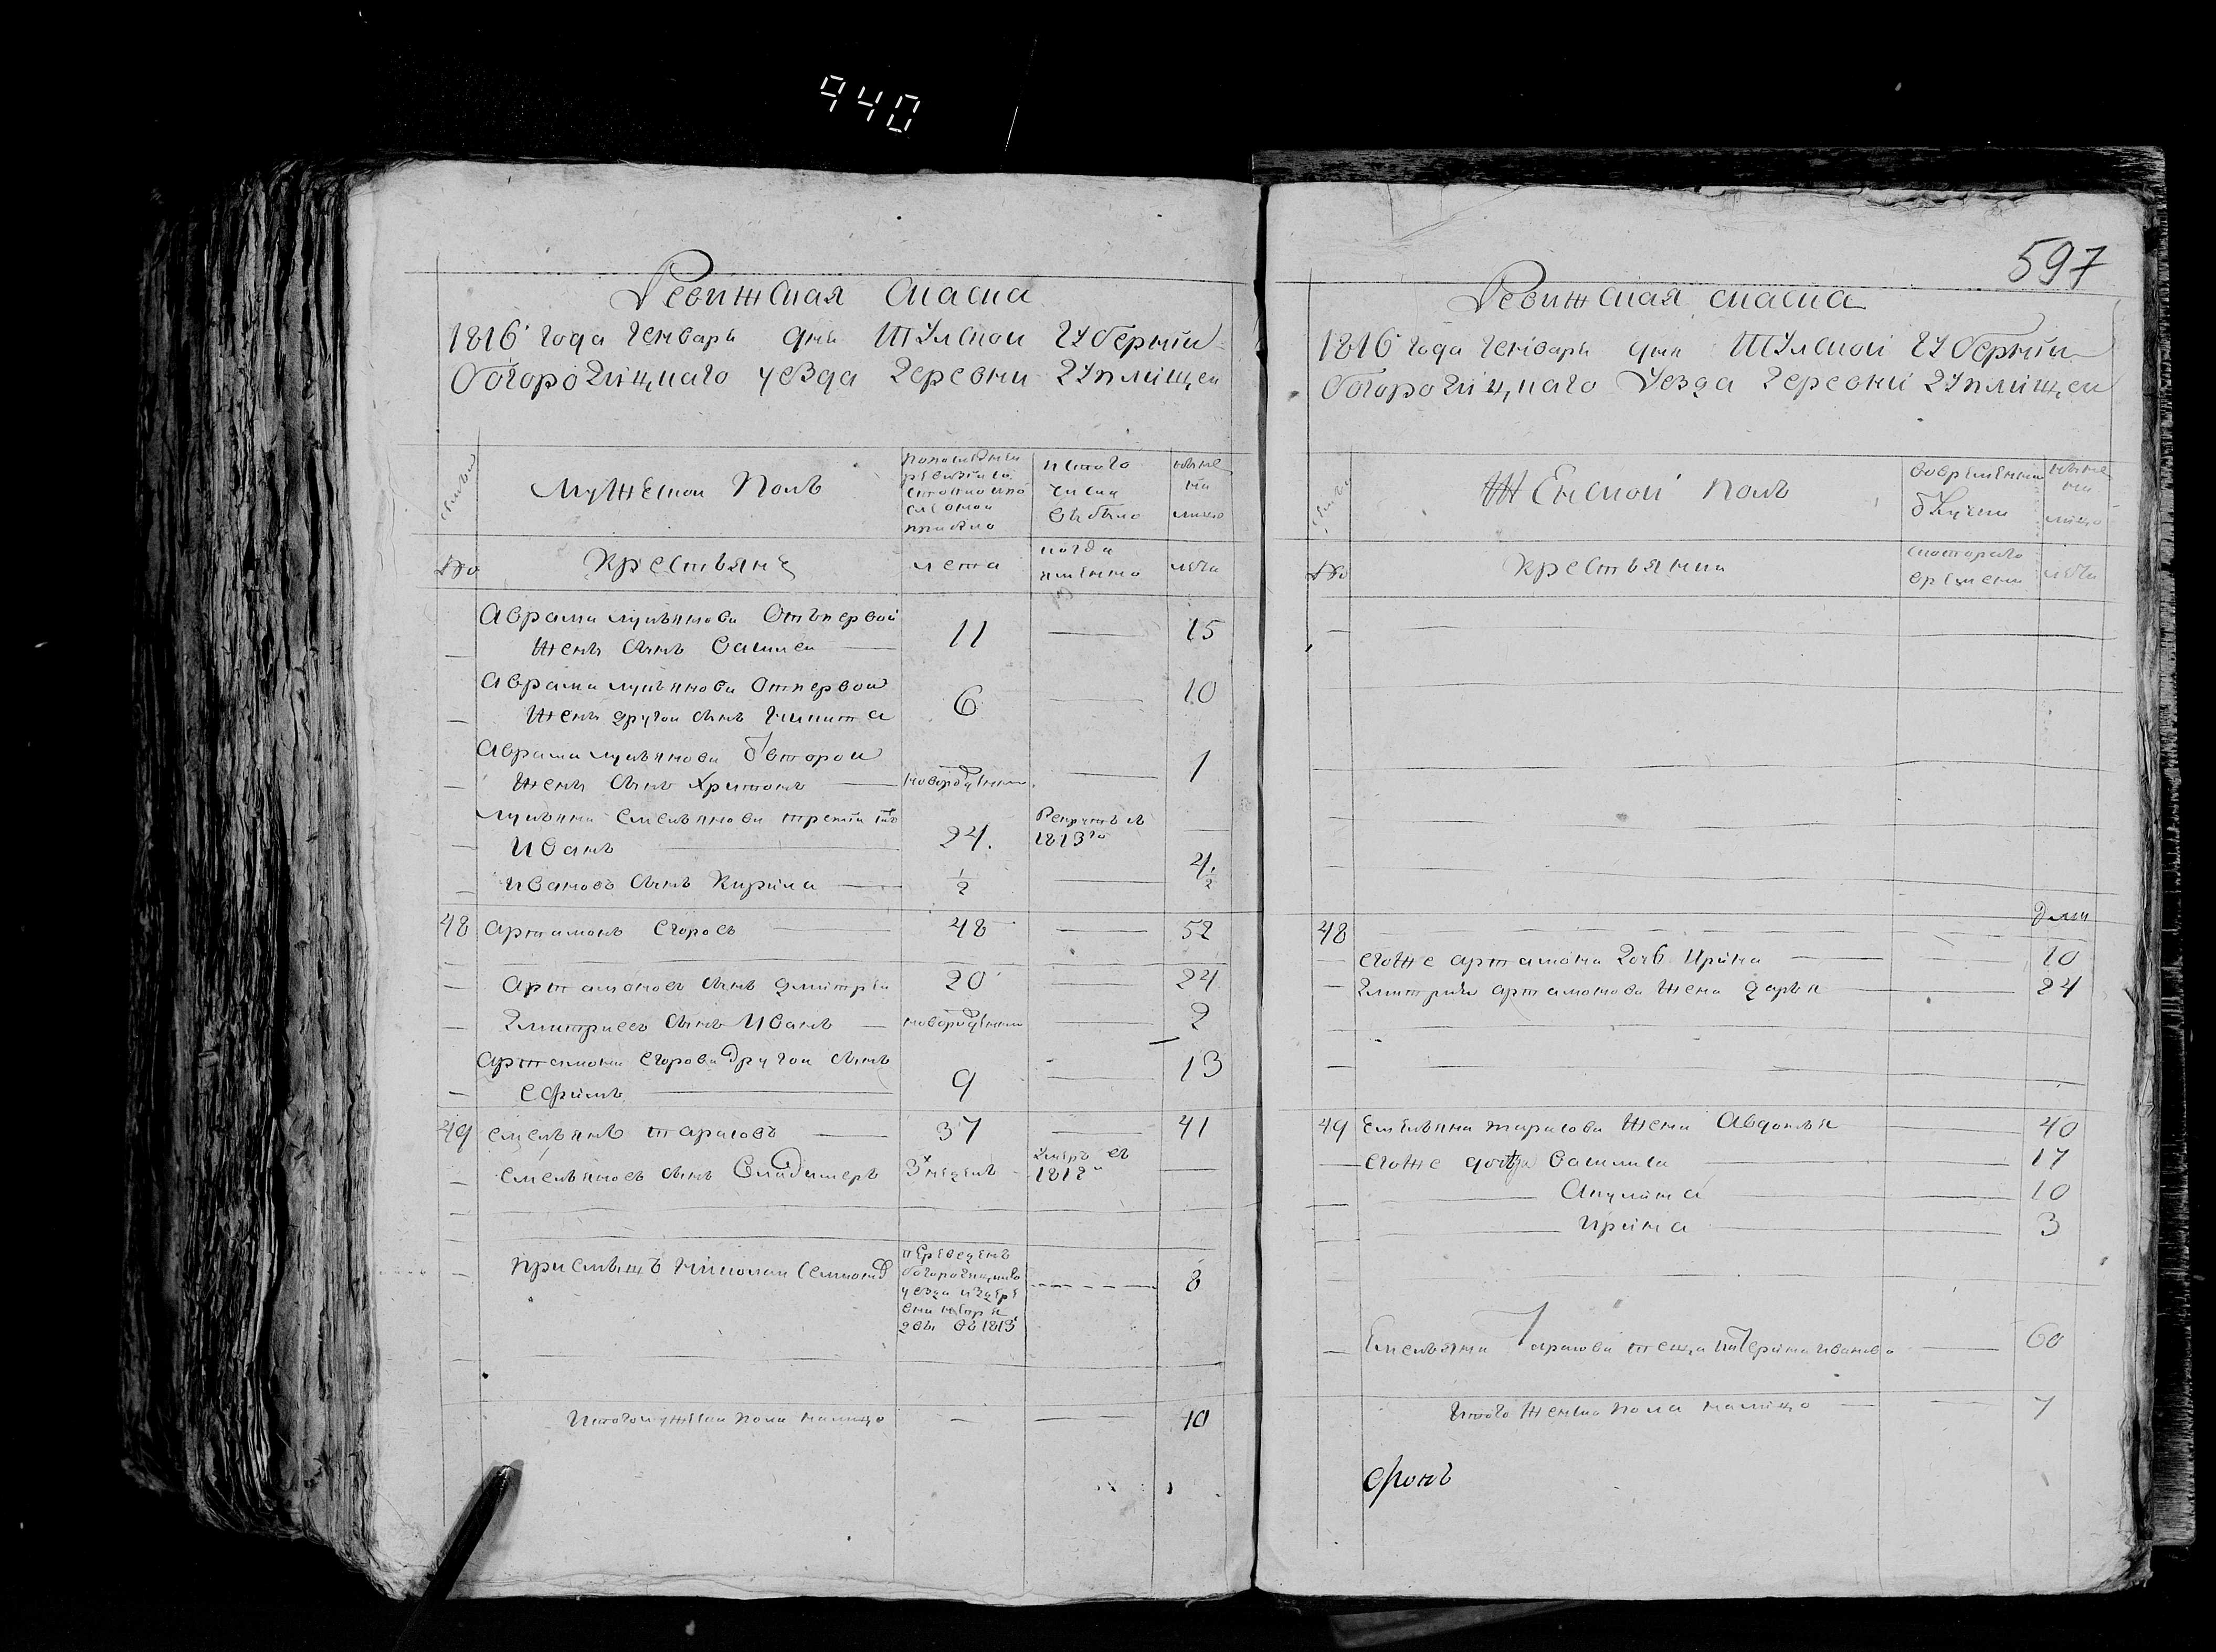 940
Ревижская сказка
1816 года генваря дня Тулской губернии
богородицкаго уезда деревни Дуплищеи
семьи
Мужескои Полъ
Попоследней
ревизии
состояло и по
слеонои
прибыло
исъ того
числа
выбыло
ныне
на
лицо
№
Крестьяне
лета
когда
именно
лета
Аврама лукьянова Отъпервой
жены сынъ Василеи
11
15
Аврама лукьянова Отпервои
жены другои сынъ Никита
6
10
Аврама лукьянова Овторои
жены сынъ Харитонъ
новорожденои
1
лукьяна емельянова третий сынъ
Иванъ
24.
Рекрутъ въ
1813го
Ивановъ сынъ Кирила
1/2
4 1/2
48 артамонъ егоровъ
48
52
артамоновъ сынъ дмитреи
20
24
дмитриевъ сынъ Иванъ
новорожденои
2
артамона егорова другои сынъ
ефимъ
9
13
49 емельянъ тарасовъ
37
41
емельяновъ сынъ Владимеръ
3 недель
умеръ въ
1812м
приемышъ Николаи Семионовъ
переведенъ
богородицкаго
уезда из дере
вни
въ 1813
8
Итого мужеска пола налицо
10
597
Ревижская сказка
1816 года генваря дня Тулской губернии
богородицкаго уезда деревни Дуплищеи
семьи
Женскои полъ
вовременнои
отлучки
ныне
на
лицо
№
Крестьянки
скотораго
времени
лета
лета
48
егоже артамона дочь Ирина
10
дмитрия артамонова жена дарья
24
49 Емельяна тарасова жена Авдотья
40
егоже дочь Василиса
17
Акулина
10
Ирина
3
Емельяна Тарасова теща катерина иванова
60
Итого женска пола налицо
7